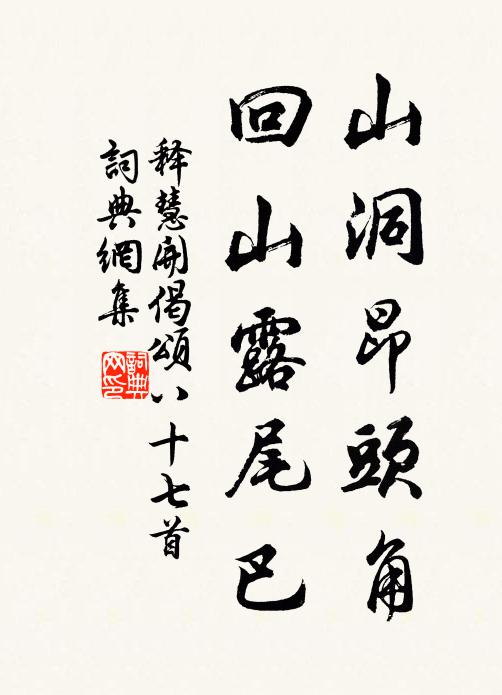 山洞昂頭角
回山露尾巴
释慧開偈頌八十七首
詞典網集
詞典网印